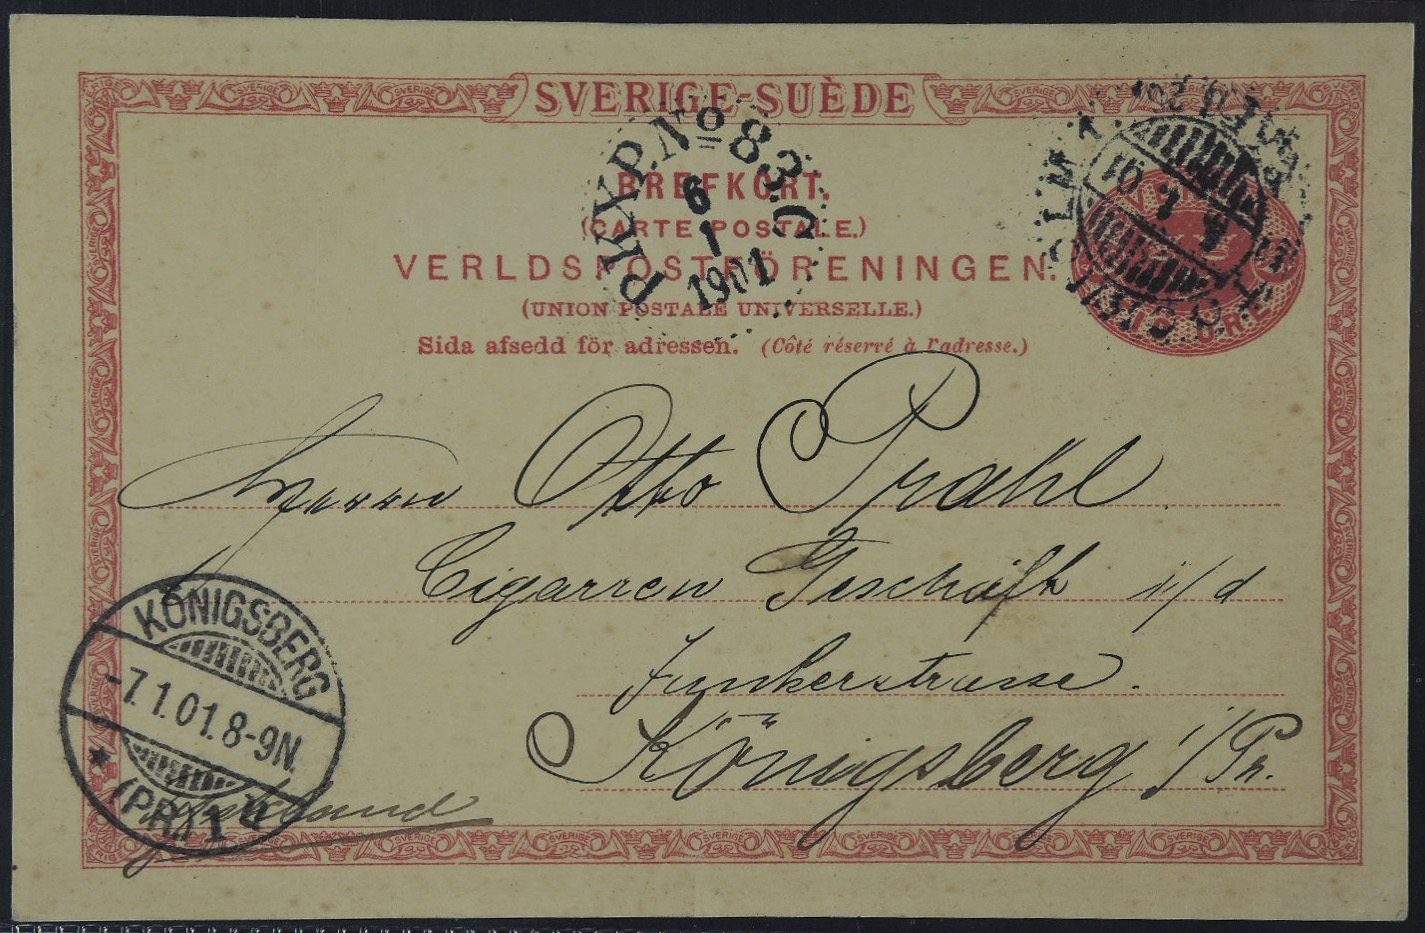 SVERIGE-SUÈDE
BREFKORT.
(CARTE POSTALE.)
VERLDSPOSTFÖRENINGEN.
(UNION POSTALE UNIVERSELLE.)
Sida afsedd för adressen. (Côté réservé à l'adresse.)
PKXP. No 83. C
6
1
1901
Herrn Otto Prahl
Cigarren Geschäft i/d
Junkerstrasse.
Königsberg i/Pr.
KÖNIGSBERG
-7.1.01.8-9N.
(PR.) 1